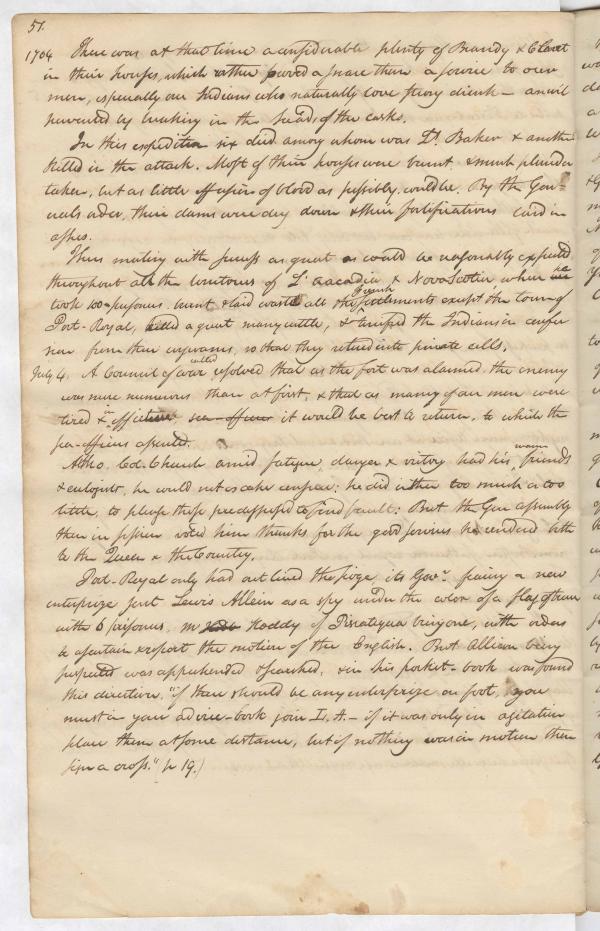 51.
1704 There was at that time a considerable plenty of Brandy & Claret
in their houses, which rather proved a snare then a service to over
men, especially our Indians who naturally love strong drink — an evil
prevented by breaking in the heads of the casks.
In this expedition six died among whom was Dr. Baker & another
killed in the attack. Most of their houses were burnt & much plunder
taken, but as little effusion of blood as possibly could be. By the Gen-
erals order, their dams were dug down & their fortifications laid in
ashes.
Thus meeting with success as great as could be reasonably expected
throughout all the territories of L'accadia & Nova Scotia where he
took 100 prisoners, burnt & laid waste all the French settlements except the town of
Port-Royal, killed a great many cattle, & terrified the Indians
near from their, so that they retired into private cells.
July 4. A Council of war called resolved that as the fort was alarmed the enemy
was more numerous than at first, & that as many of our men were
tired & in effective sea-officers it would be best to return, to which the
sea-officers assented.
Altho. Col. Church amid fatigue, danger & victory had his warm friends
& eulogists, he would not escape censure: he did either too much or too
little, to please those predisposed to find fault: But the Gen assembly
then in session voted him thanks for the good services he rendered both
to the Queen & the Country.
Port-Royal only had out lived the siege, its Govr. fearing a new
enterprize sent Lewis Allein as a spy under the color of a flag of truce
with 6 prisoners, Mr Hoddy of Piscataqua being one, with orders
to ascertain & report the motion of the English. But Allien being
suspected was apprehended & searched, & in his pocket-book was found
this direction, "if there should be any enterprize on foot, you
must in your advice-book join L. A. — if it was only in agitation
place them at some distance, but if nothing was in motion then
sign a cross." (p 19.)